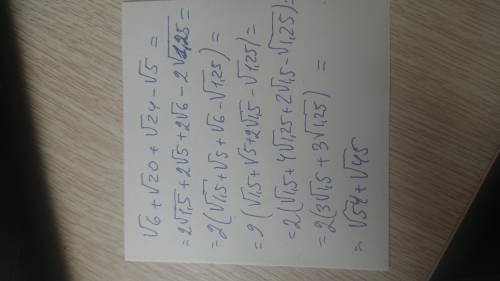 √6 + √20 + √24 − √5 =
= 2√1,5 + 2√5 + 2√6 − 2√1,25 =
= 2(√1,5 + √5 + √6 − √1,25) =
= 2(√1,5 + √5 + 2√1,5 − √1,25) =
= 2(√1,5 + 4√1,25 + 2√1,5 − √1,25) =
= 2(3√1,5 + 3√1,25) =
= √54 + √45